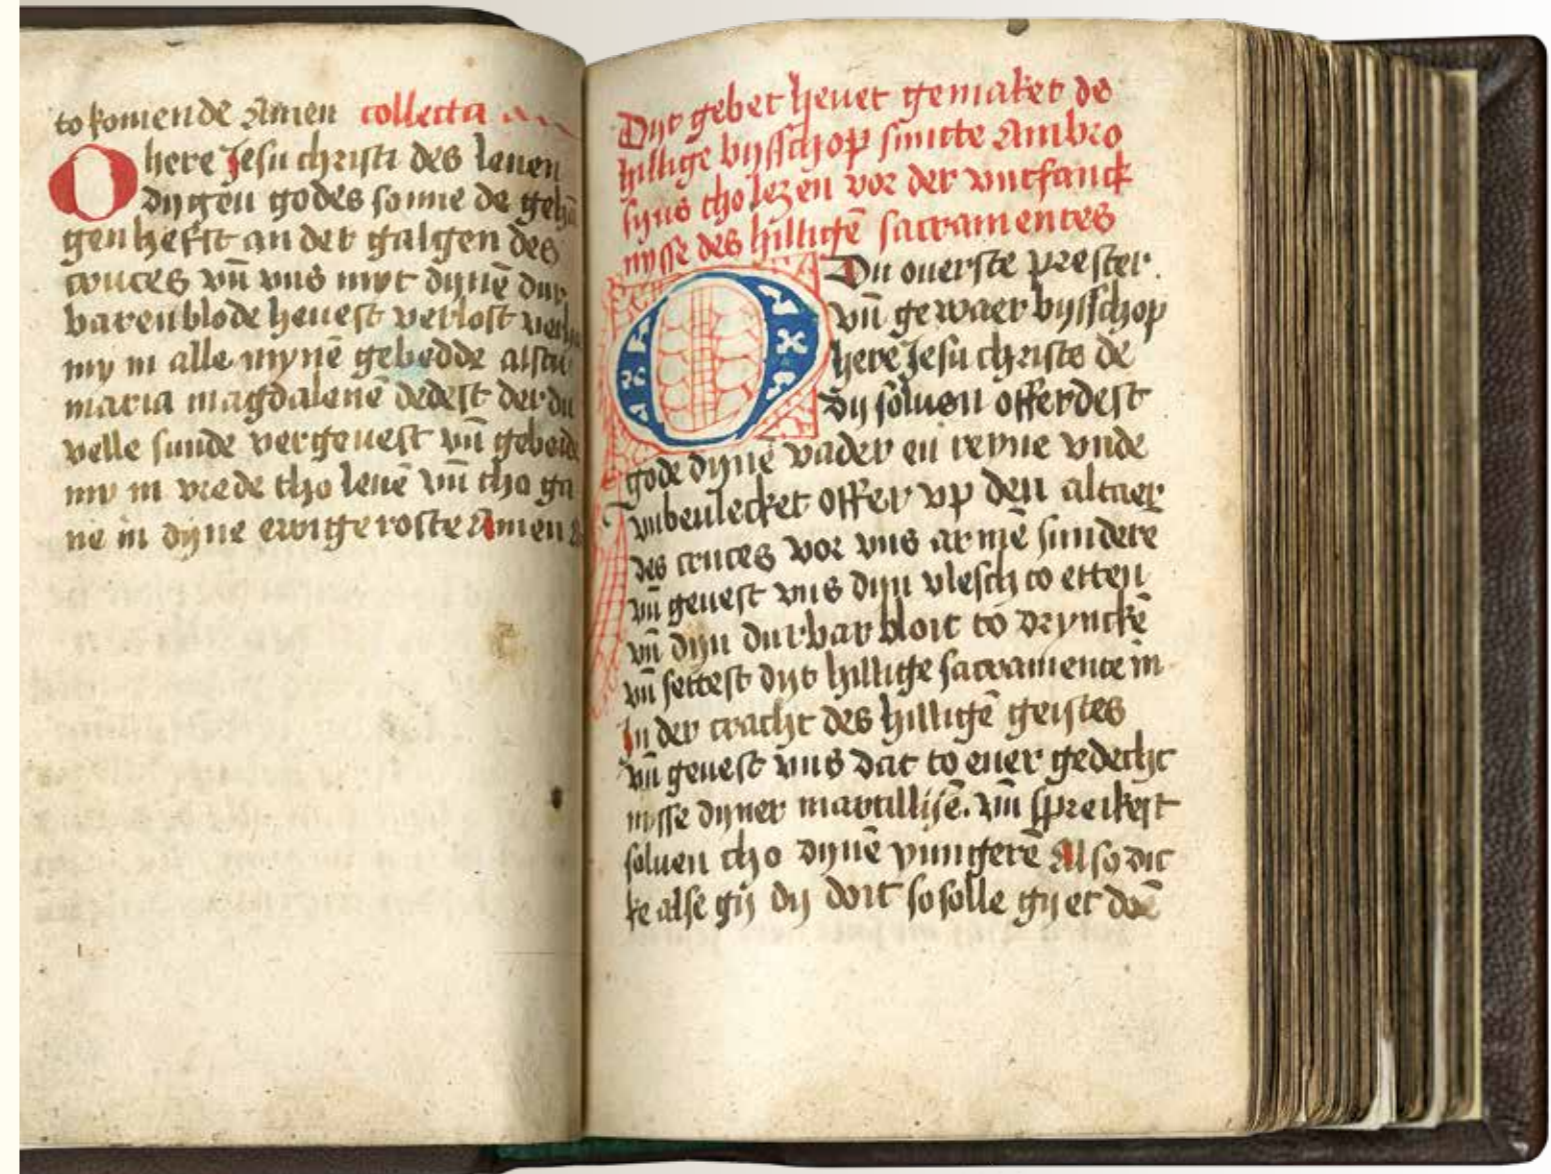 to komende Amen collecta
O here Jesu christi des leuen
dygen godes sonne de gehā
gen hefft an der galgen des
cruces vn̄ vns myt dynē dur
baren blode heuest verlost
my in alle mynē gebedde
maria magdalenē dedest
velle sunde vergeuest vn̄
my in vrede tho leuē vn̄ tho ga
ne in dyne ewige roste Amen
Dyt gebet heuet gemaket de
hillige bysschop sincte Ambro
syus tho lezen vor der vntfanck
nysse des hilligē sacramentes
O Du ouerste prester
vn̄ gewaer bysschop
here Jesu christe de
dy soluen offerdest
gode dynē vader en reyne vnde
vnbeulecket offer vp den altaer
des cruces vor vns armē sundere
vn̄ geuest vns dyn vlesch to etten
vn̄ dyn durbar bloit to drynckē
vn̄ settest dyt hillige sacramente in
In der cracht des hilligē geistes
vn̄ geuest vns dat to ener gedecht
nysse dyner martillisē. vn̄ spreikest
soluen tho dynē yungerē Also dic
ke alse gy dy doit so solle gy et doē